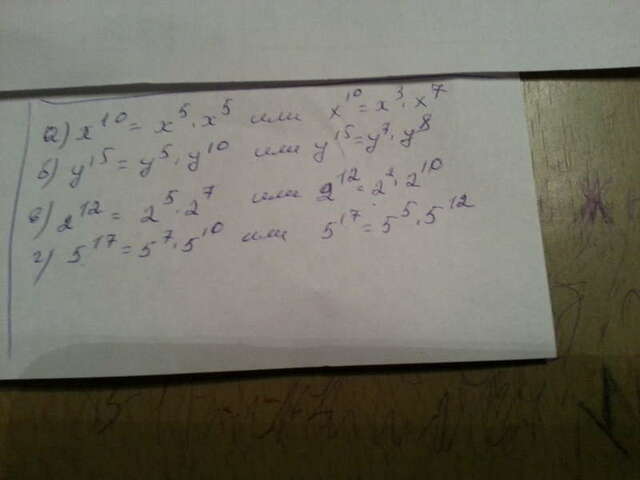 а) x¹⁰ = x⁵ · x⁵ или x¹⁰ = x³ · x⁷
б) y¹⁵ = y⁵ · y¹⁰ или y¹⁵ = y⁷ · y⁸
в) 2¹² = 2⁵ · 2⁷ или 2¹² = 2² · 2¹⁰
г) 5¹⁷ = 5⁷ · 5¹⁰ или 5¹⁷ = 5⁵ · 5¹²